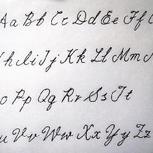 Aa Bb Cc Dd Ee Ff G
Hh Ii Jj Kk Ll Mm N
o Pp Qq Rr Ss Tt
Uu Vv Ww Xx Yy Zz